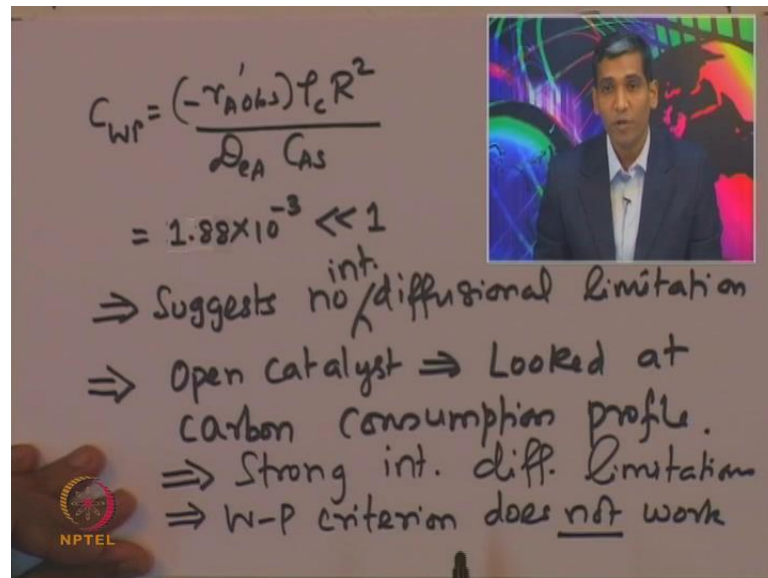 C_WP = (-r'_A obs) ρ_c R²
D_eA C_AS
= 1.88×10⁻³ << 1
⇒ Suggests no int. diffusional limitation
⇒ Open catalyst ⇒ Looked at
carbon consumption profile.
⇒ Strong int. diff. limitations
⇒ W-P criterion does not work
NPTEL